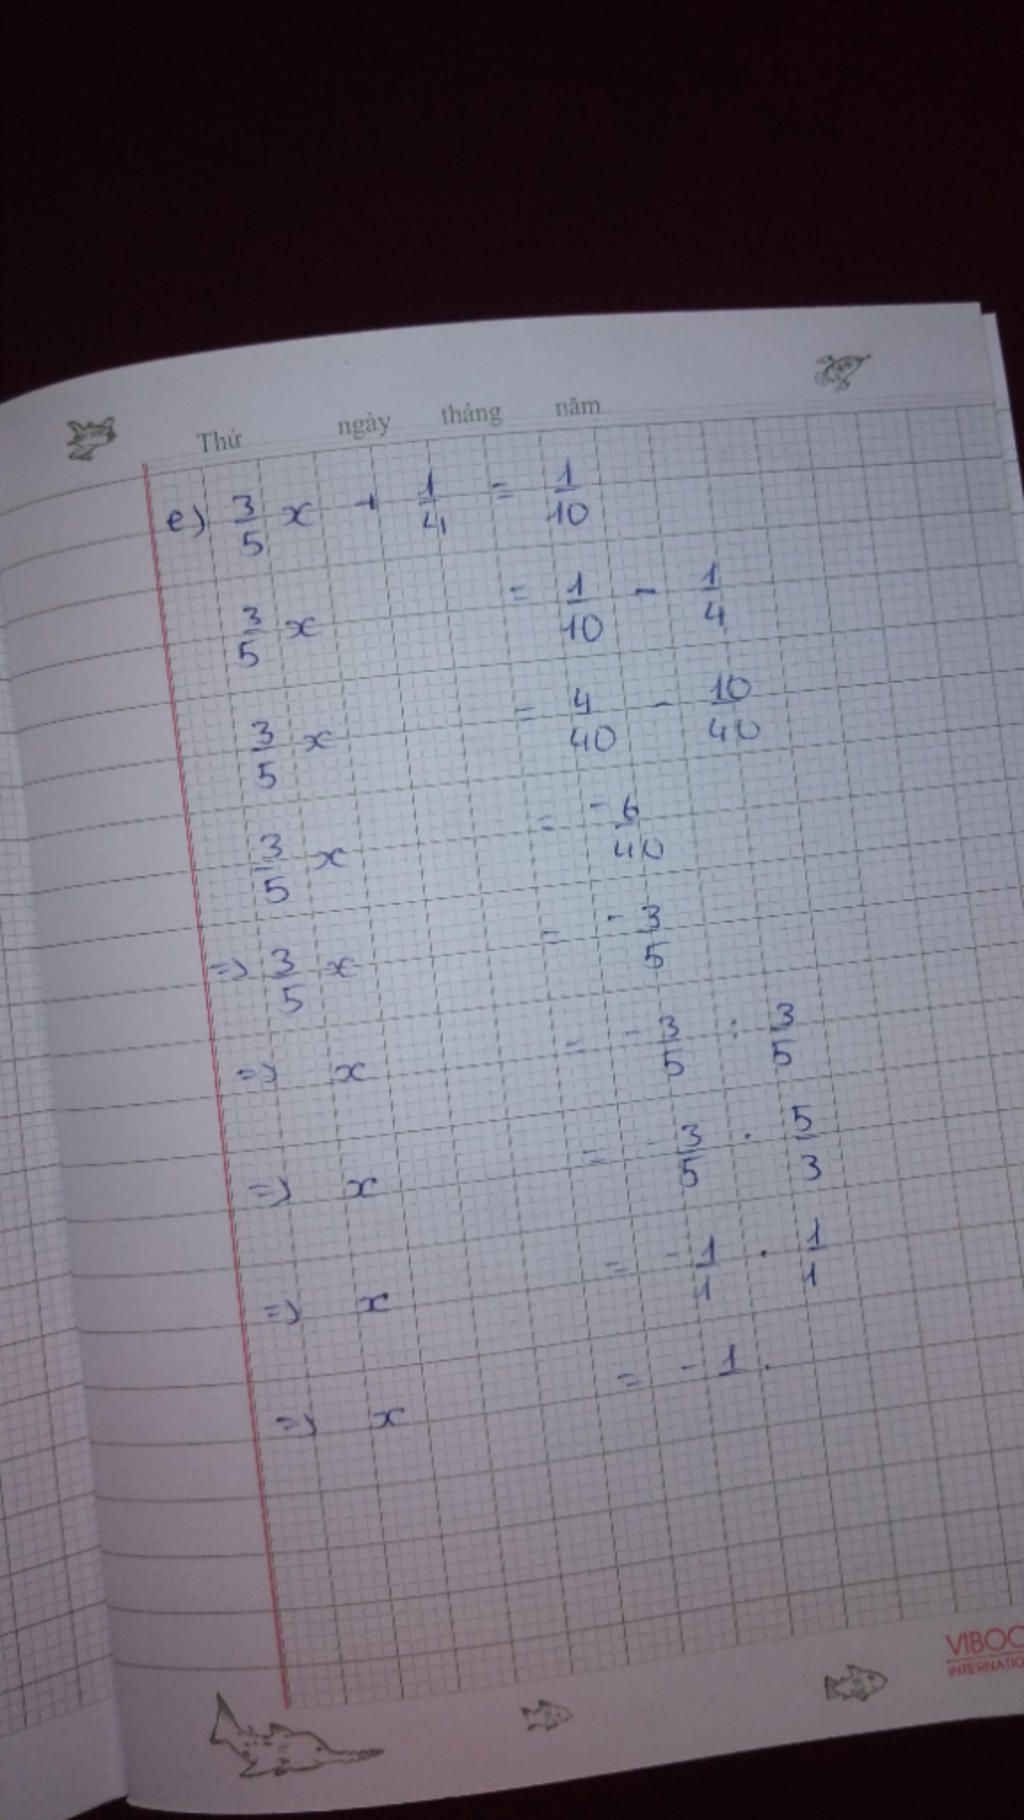 Thứ ngày tháng năm
e) 3/5 x + 1/4 = 1/10
3/5 x = 1/10 - 1/4
3/5 x = 4/40 - 10/40
3/5 x = -6/40
=> 3/5 x = -3/5
=> x = -3/5 : 3/5
=> x = -3/5 . 5/3
=> x = -1/1 . 1/1
=> x = -1.
VIBOO
INTERNATIO